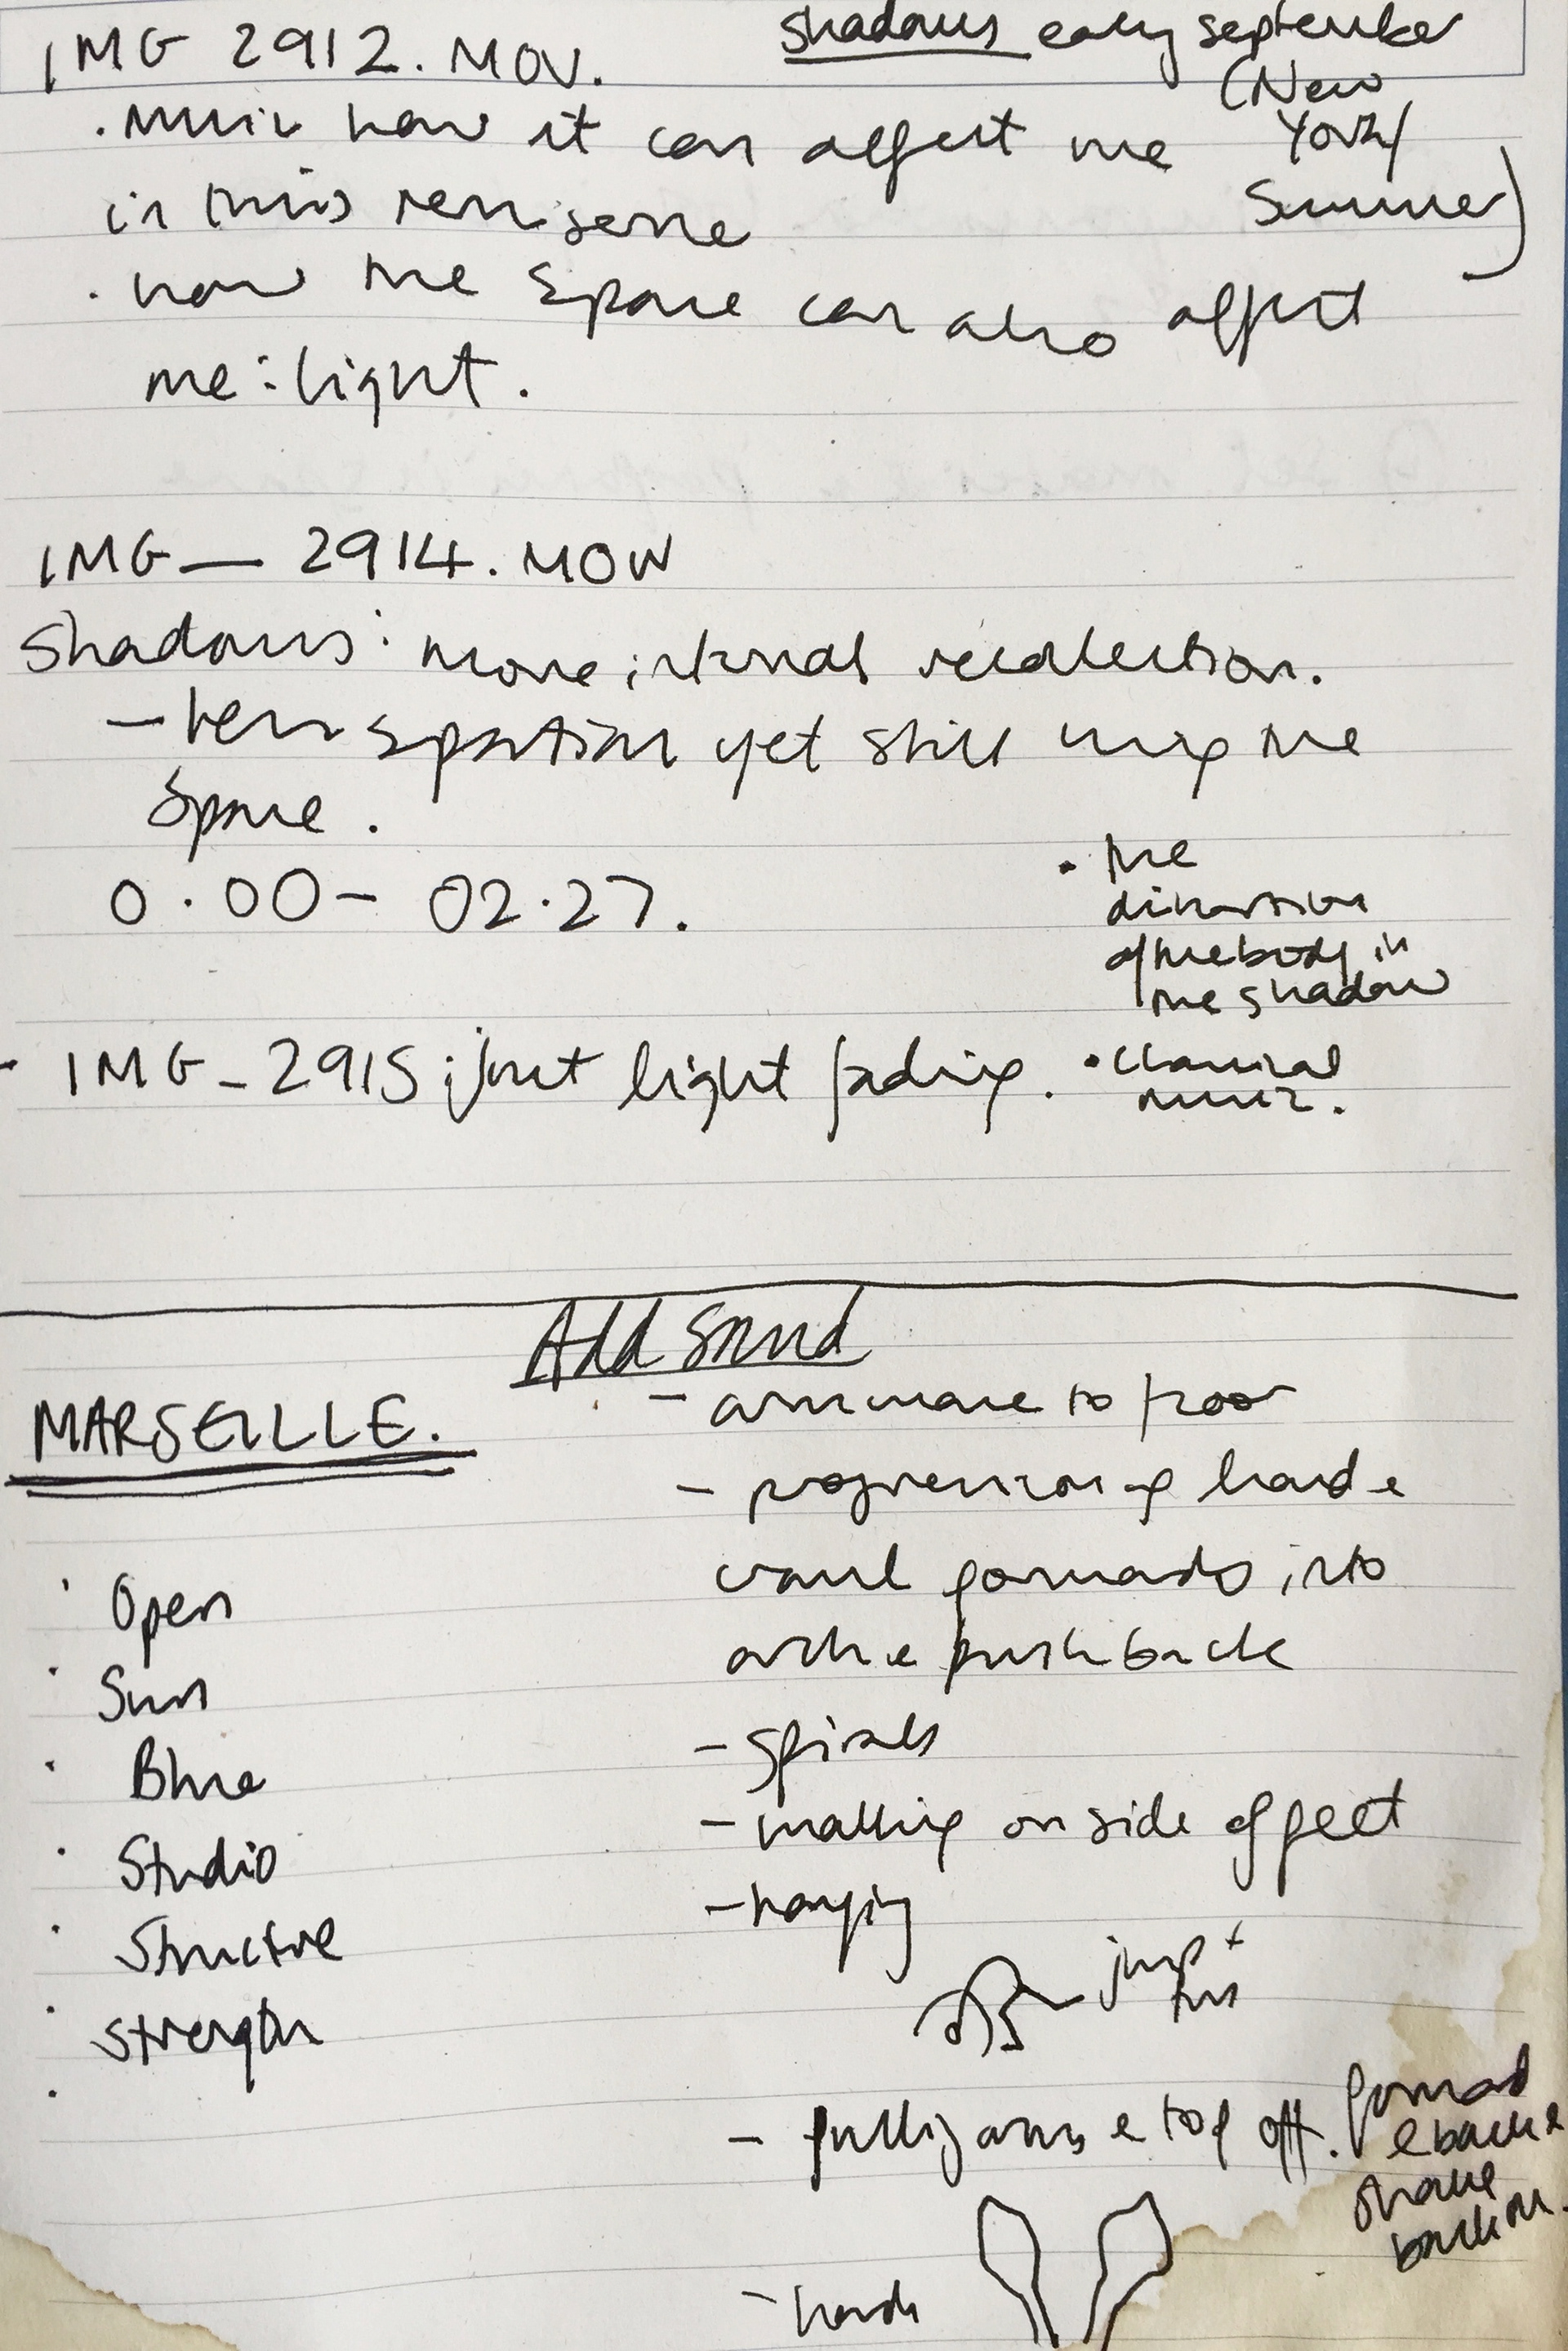 IMG 2912. MOV.
shadows early september
(New
York/
Summer)
. Music how it can affect me
in this
. how the space can also affect
me: light.
IMG_ 2914. MOV
Shadows: more internal recollection.
- less spatial yet still using the
space.
0.00 - 02.27.
. the
dimension
of the body in
the shadow
- IMG_2915: just light fading.
. classical
music.
Add Sound
MARSEILLE.
. Open
. Sun
. Blue
. Studio
. Structure
. Strength
.
- arm wave to floor
- progression of hand e
crawl forwards into
arch e push back
- Spirals
- walking on side of feet
- hanging
jump +
turn
- pulling arms e top off. forward
e back e
shake
back on.
- hands